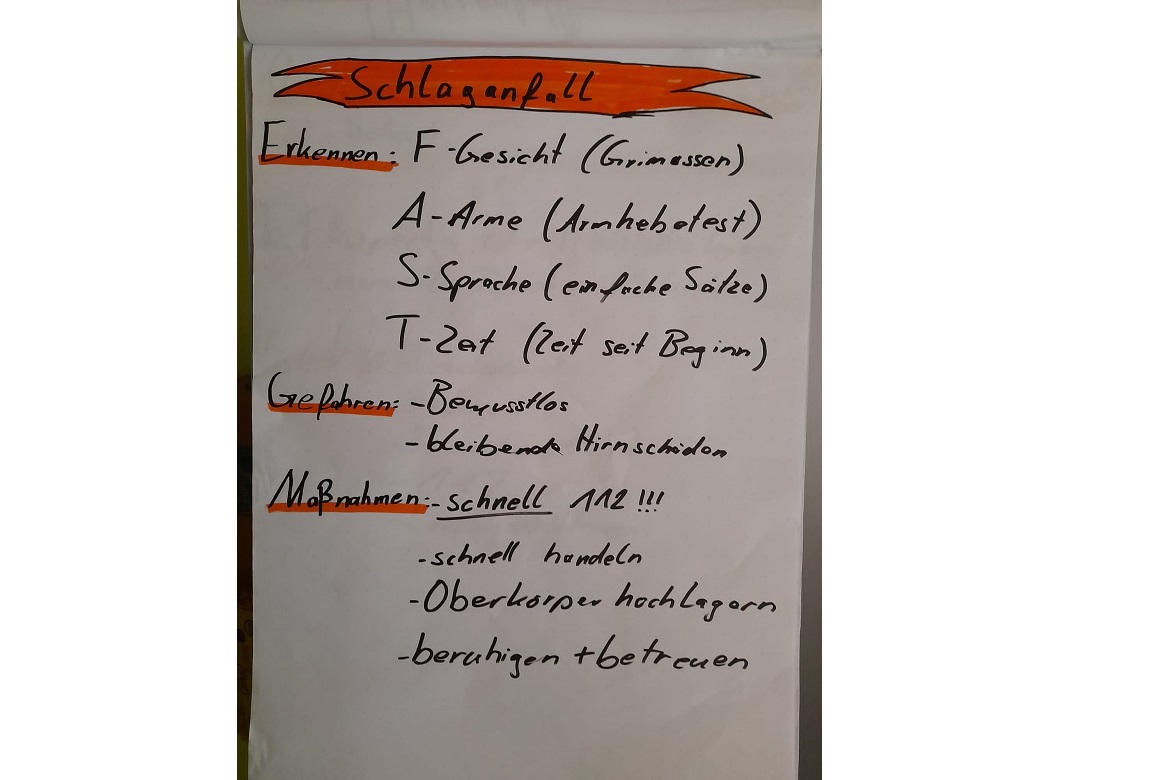 Schlaganfall
Erkennen: F-Gesicht (Grimassen)
A-Arme (Armhebetest)
S-Sprache (einfache Sätze)
T-Zeit (Zeit seit Beginn)
Gefahren: -Bewusstlos
-bleibende Hirnschäden
Maßnahmen:-schnell 112 !!!
-schnell handeln
-Oberkörper hochlagern
-beruhigen + betreuen